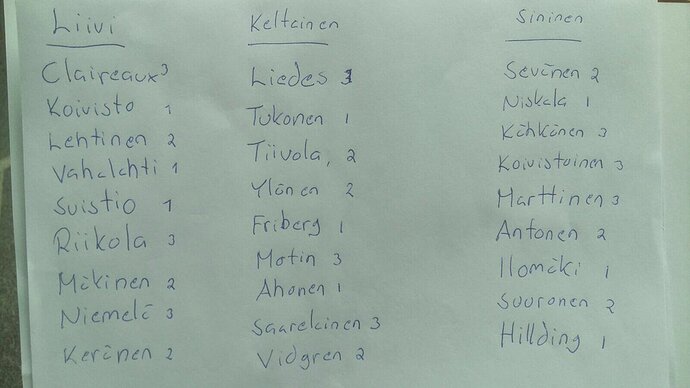 Liivi
Claireaux 3
Koivisto 1
Lehtinen 2
Vahalahti 1
Suistio 1
Riikola 3
Mäkinen 2
Niemelä 3
Keränen 2
Keltainen
Liedes 3
Tukonen 1
Tiivola, 2
Ylönen 2
Friberg 1
Motin 3
Ahonen 1
Saarelainen 3
Vidgren 2
Sininen
Sevänen 2
Niskala 1
Kähkönen 3
Koivistoinen 3
Marttinen 3
Antonen 2
Ilomäki 1
Suuronen 2
Hillding 1